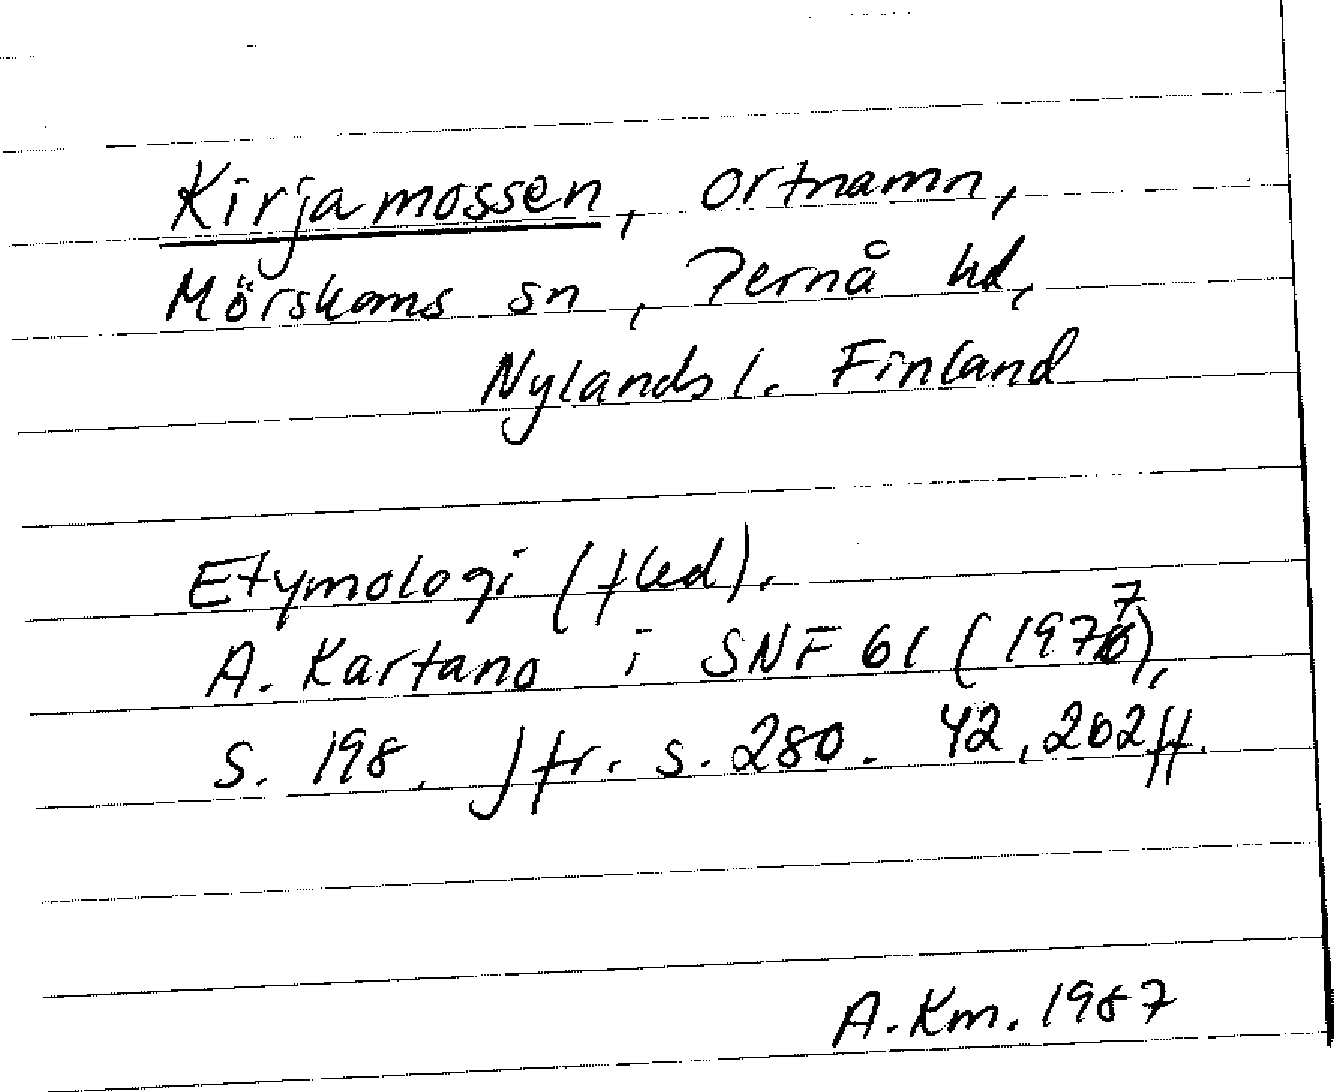 Kirjamossen, ortnamn,
Mörskoms sn, Pernå hd,
Nylands l. Finland
Etymologi (fled).
A. Kartano i SNF 61 (1977),
s. 198. Jfr. s. 280. 42, 202ff.
A. Km. 1987